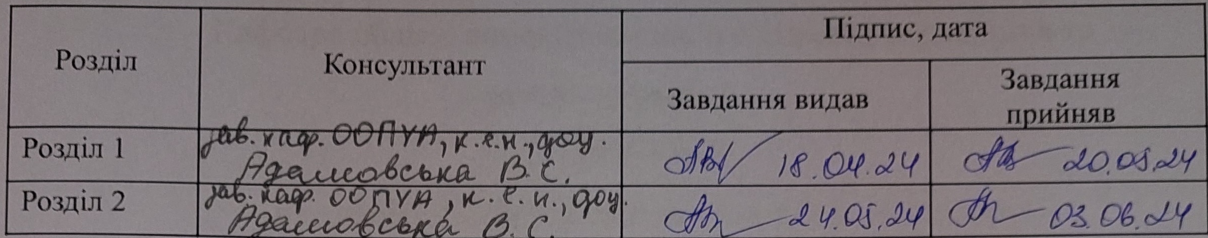 Розділ
Консультант
Підпис, дата
Завдання видав
Завдання
прийняв
Розділ 1
зав. каф. ООПУА, к.е.н., доц.
Адамовська В. С.
18.04.24
20.05.24
Розділ 2
зав. каф. ООПУА, к.е.н., доц.
Адамовська В. С.
24.05.24
03.06.24